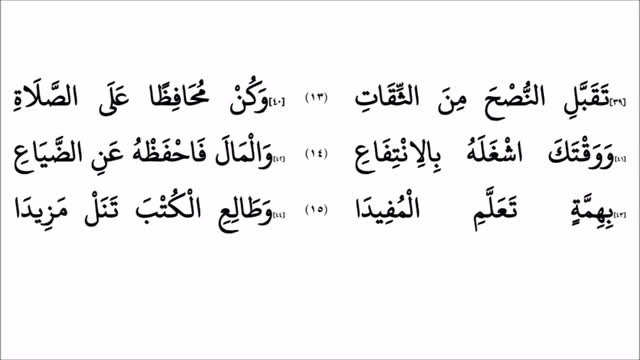 [٣٩]تَقَبَّلِ النُّصْحَ مِنَ الثِّقَاتِ (١٣) [٤٠]وَكُنْ مُحَافِظًا عَلَى الصَّلَاةِ
[٤١]وَوَقْتَكَ اشْغَلَهُ بِالِانْتِفَاعِ (١٤) [٤٢]وَالْمَالَ فَاحْفَظْهُ عَنِ الضَّيَاعِ
[٤٣]بِهِمَّةٍ تَعَلَّمِ الْمُفِيدَا (١٥) [٤٤]وَطَالِعِ الْكُتْبَ تَنَلْ مَزِيدَا